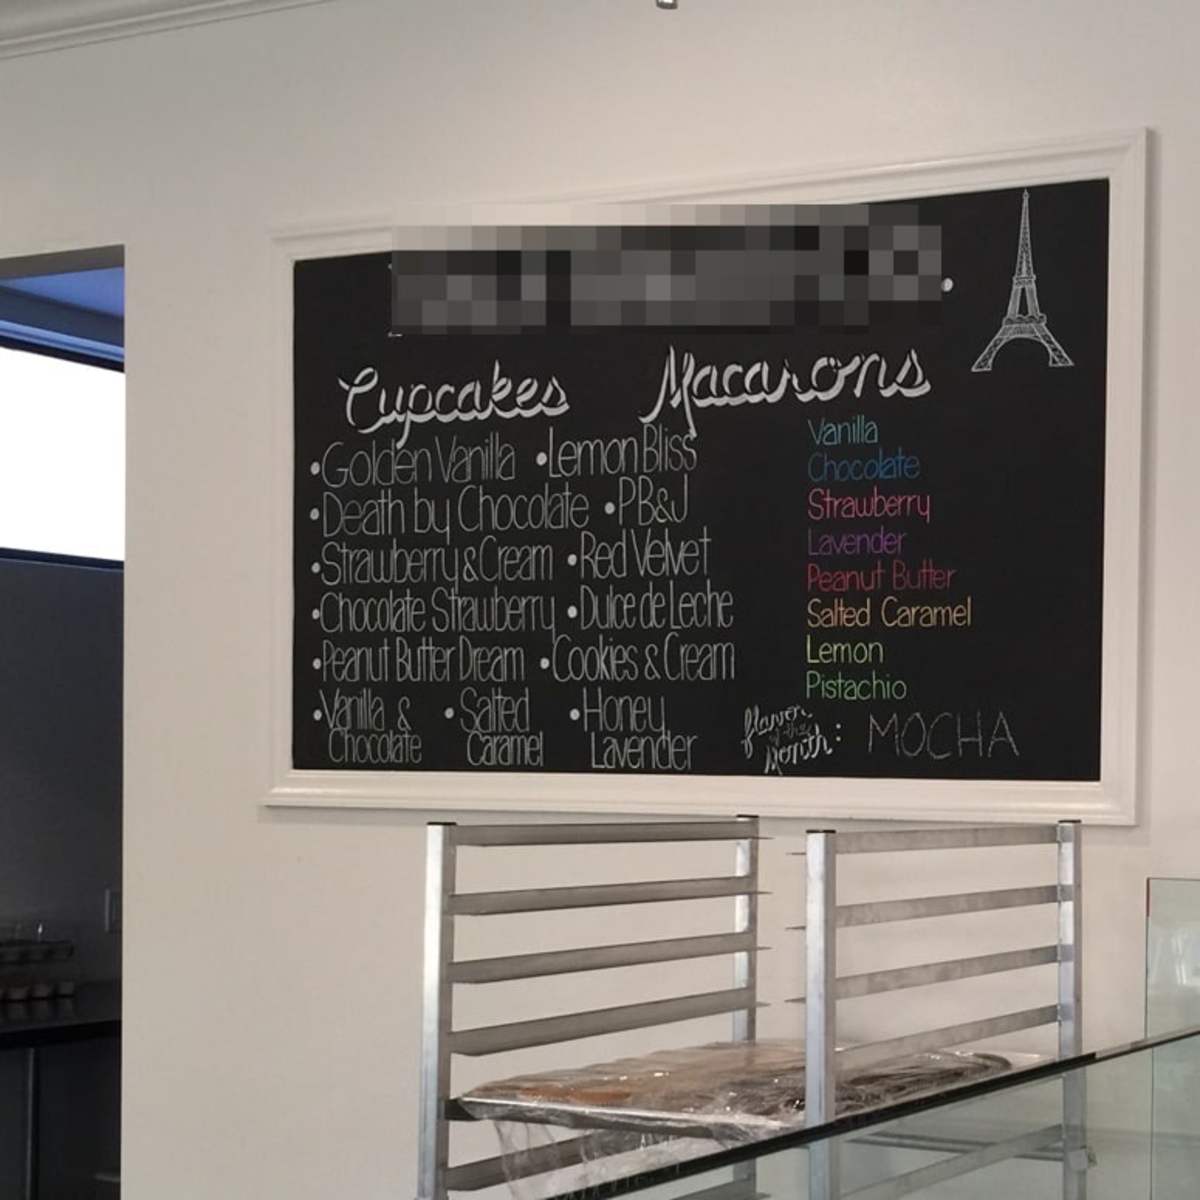 Cupcakes
• Golden Vanilla • Lemon Bliss
• Death by Chocolate • PB&J
• Strawberry & Cream • Red Velvet
• Chocolate Strawberry • Dulce de Leche
• Peanut Butter Dream • Cookies & Cream
• Vanilla & Chocolate • Salted Caramel • Honey Lavender
Macarons
Vanilla
Chocolate
Strawberry
Lavender
Peanut Butter
Salted Caramel
Lemon
Pistachio
flavor of the Month: MOCHA